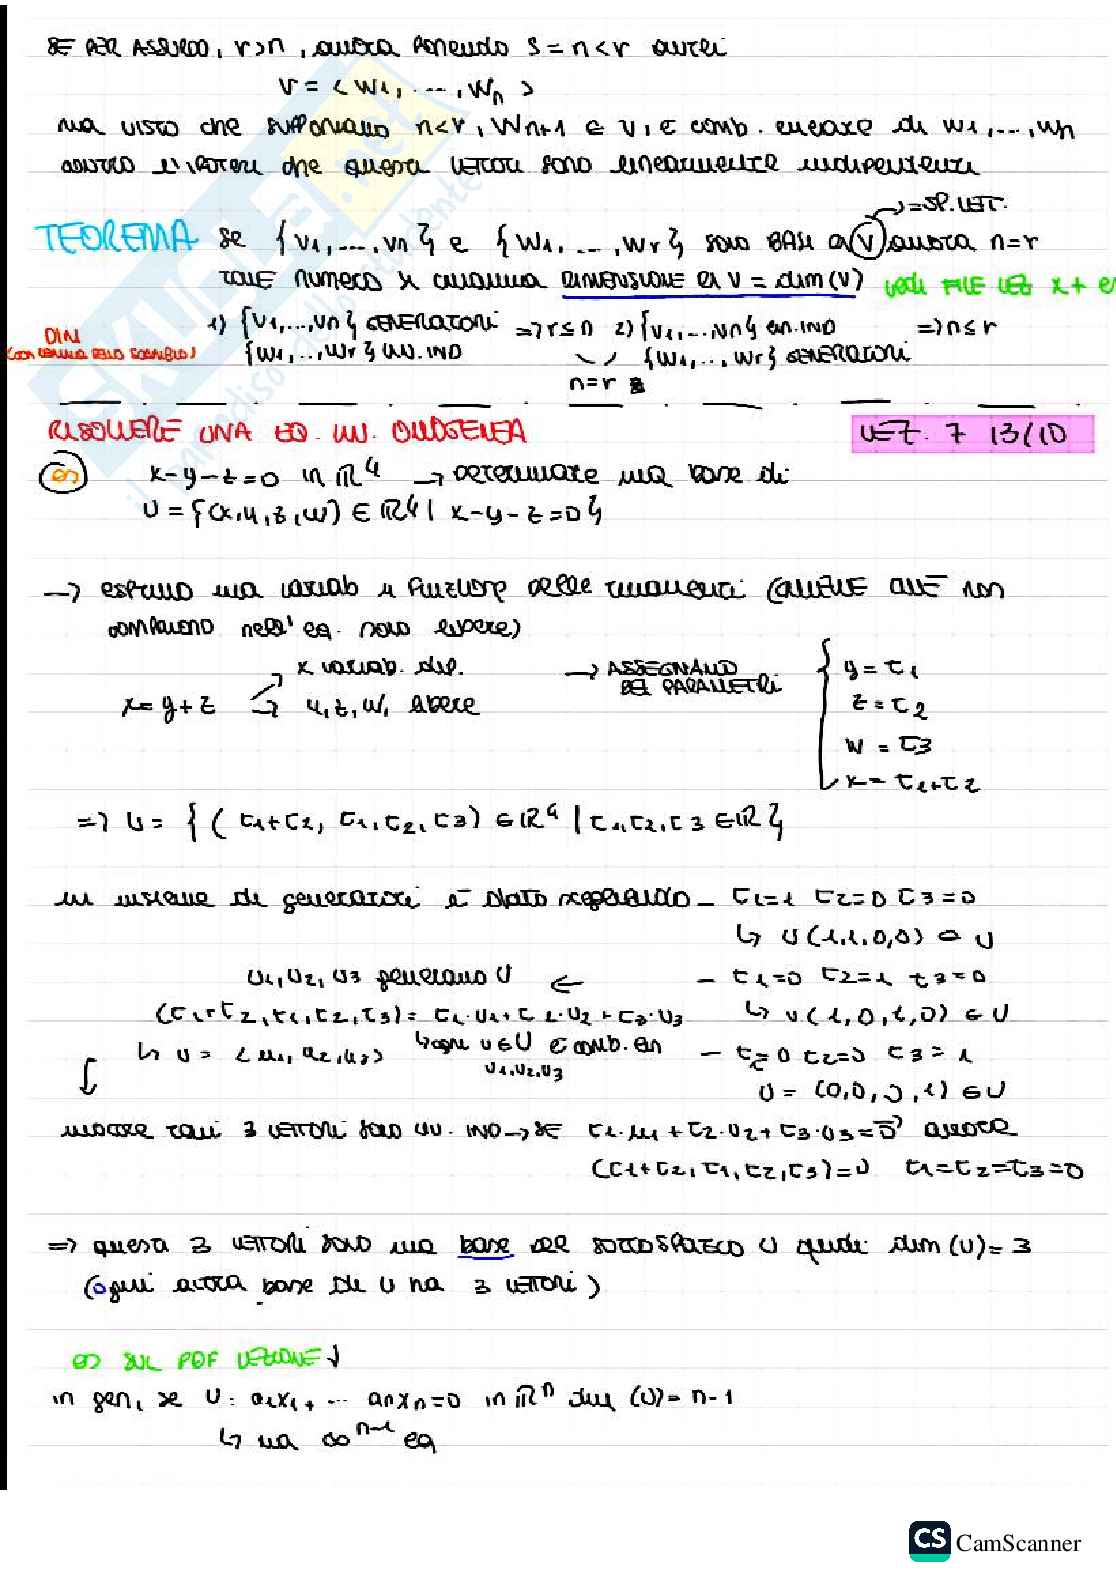 SE PER ASSURDO, r>n, allora ponendo S=n<r avrei
V = <w1, ..., wn>
ma visto che supponiamo n<r, Wn+1 ∈ V, è comb. lineare di w1,...,wn
contro l'ipotesi che questi vettori sono linearmente indipendenti
→=SP. VETT.
TEOREMA se {v1,...,vn} e {w1,...,wr} sono BASI di V allora n=r
tale numero si chiama DIMENSIONE di V = dim(V) vedi FILE LEZ x +
1) {v1,...,vn} GENERATORI => r≤n 2) {v1,...,vn} lin. IND => n≤r
DIM
{w1,...,wr} LIN. IND {w1,...,wr} GENERATORI
n=r
RISOLVERE UNA EQ. LIN. OMOGENEA LEZ. 7 13/10
es x-y-z=0 in ℝ4 → determinare una base di
U={(x,y,z,w) ∈ ℝ4 | x-y-z=0}
→ esprimo una variab in funzione delle rimanenti (ANCHE CHE non
compaiono nell'eq. sono libere)
x variab. dip. → ASSEGNANDO DEI PARAMETRI
x=y+z → y,z,w, libere
y=t1
z=t2
w=t3
x=t1+t2
=> U= {(t1+t2, t1,t2,t3) ∈ ℝ4 | t1,t2,t3 ∈ℝ}
un insieme di generatori è dato scegliendo - t1=1 t2=0 t3=0
↳ U(1,1,0,0) ∈ U
U1,U2,U3 generano U ← - t1=0 t2=1 t3=0
(t1+t2,t1,t2,t3)= t1·U1+t2·U2+t3·U3 ↳ U(1,0,1,0) ∈ U
↳ U=<u1,u2,u3> ↳ogni u∈U è comb. lin - t1=0 t2=0 t3=1
U1,U2,U3
U=(0,0,0,1) ∈U
inoltre tali 3 vettori sono LIN. IND → SE t1·u1+t2·u2+t3·u3=0 allora
(t1+t2,t1,t2,t3)=0 t1=t2=t3=0
=> questi 3 vettori sono una base del SOTTOSPAZIO U quindi dim(U)=3
(ogni altra base di U ha 3 vettori)
es SUL PDF LEZIONE ↓
in gen, se U: a1x1+ ... anxn=0 in ℝn dim (U)= n-1
↳ ha ∞n-1 eq
skuola.net
il paradiso dello studente
CS CamScanner